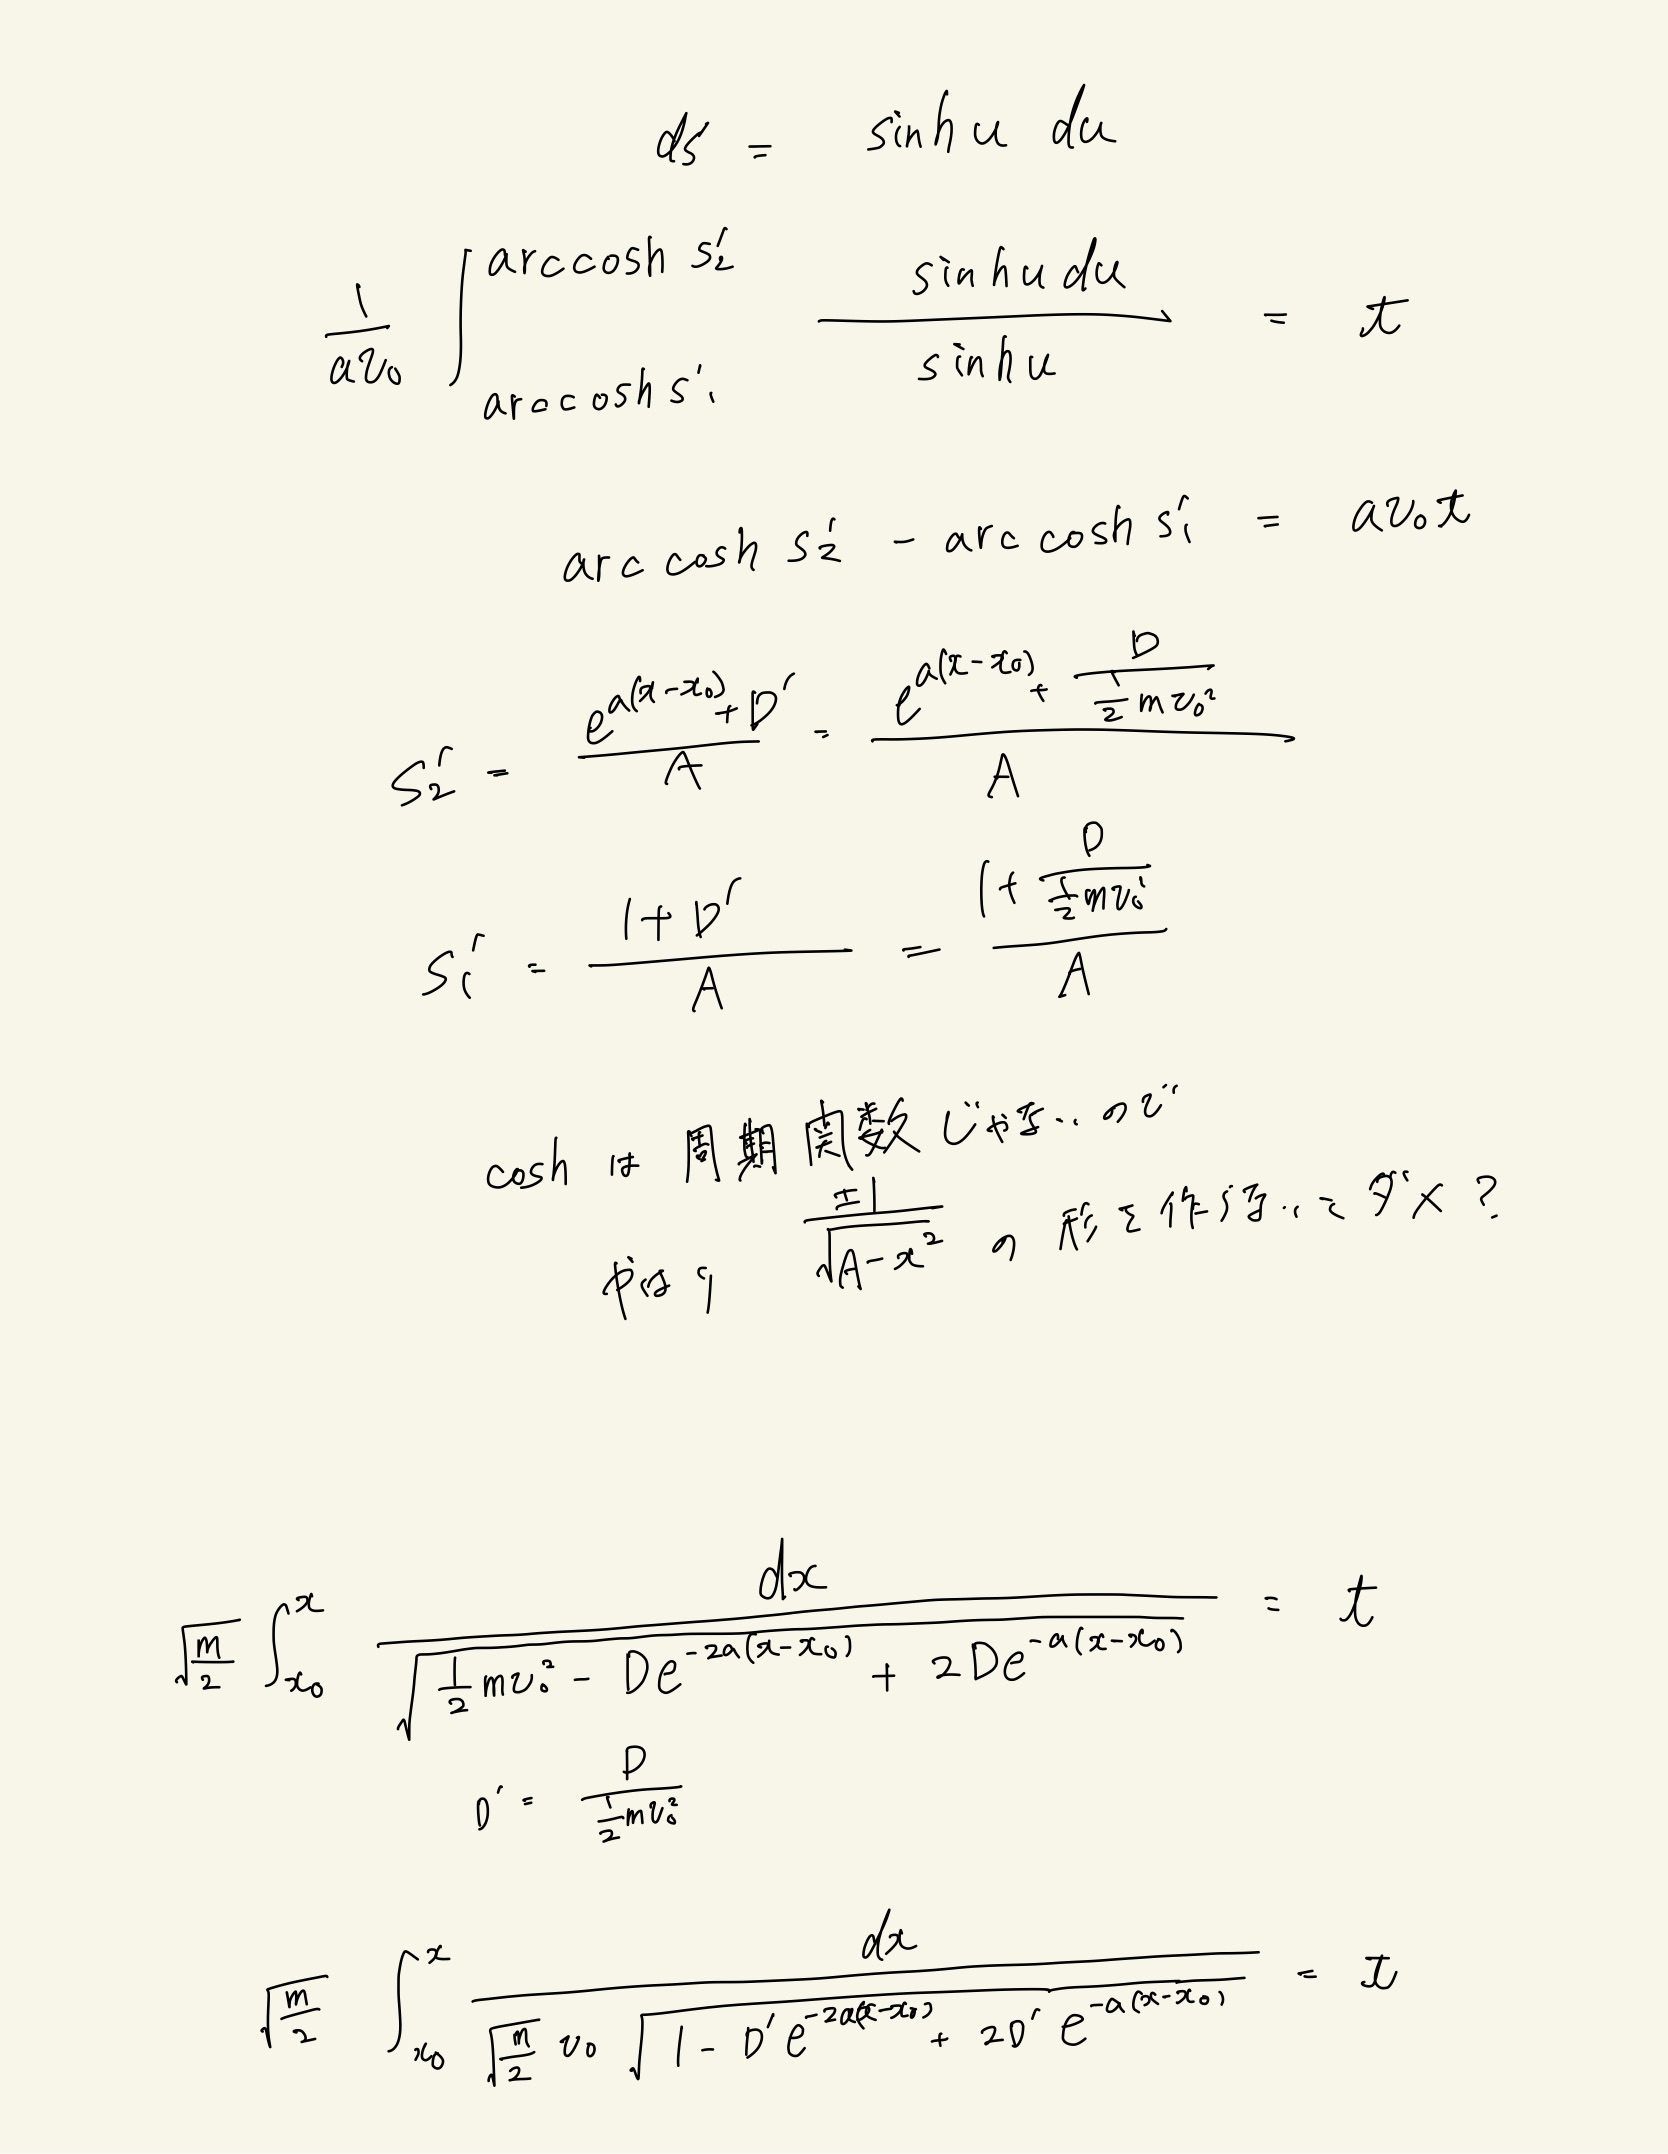 ds' = sinh u du
1/(av₀) ∫_{arccosh s'₁}^{arccosh s'₂} (sinh u du)/(sinh u) = t
arccosh s'₂ - arccosh s'₁ = av₀t
s'₂ = (e^{a(x-x₀)} + D')/A = (e^{a(x-x₀)} + D/(½mv₀²))/A
s'₁ = (1 + D')/A = (1 + D/(½mv₀²))/A
coshは周期関数じゃないので
やはり ±1/√(A-x²) の形を作らないとダメ?
√(m/2) ∫_{x₀}^{x} dx/√(½mv₀² - De^{-2a(x-x₀)} + 2De^{-a(x-x₀)}) = t
D' = D/(½mv₀²)
√(m/2) ∫_{x₀}^{x} dx/(√(m/2) v₀ √(1 - D'e^{-2a(x-x₀)} + 2D'e^{-a(x-x₀)})) = t